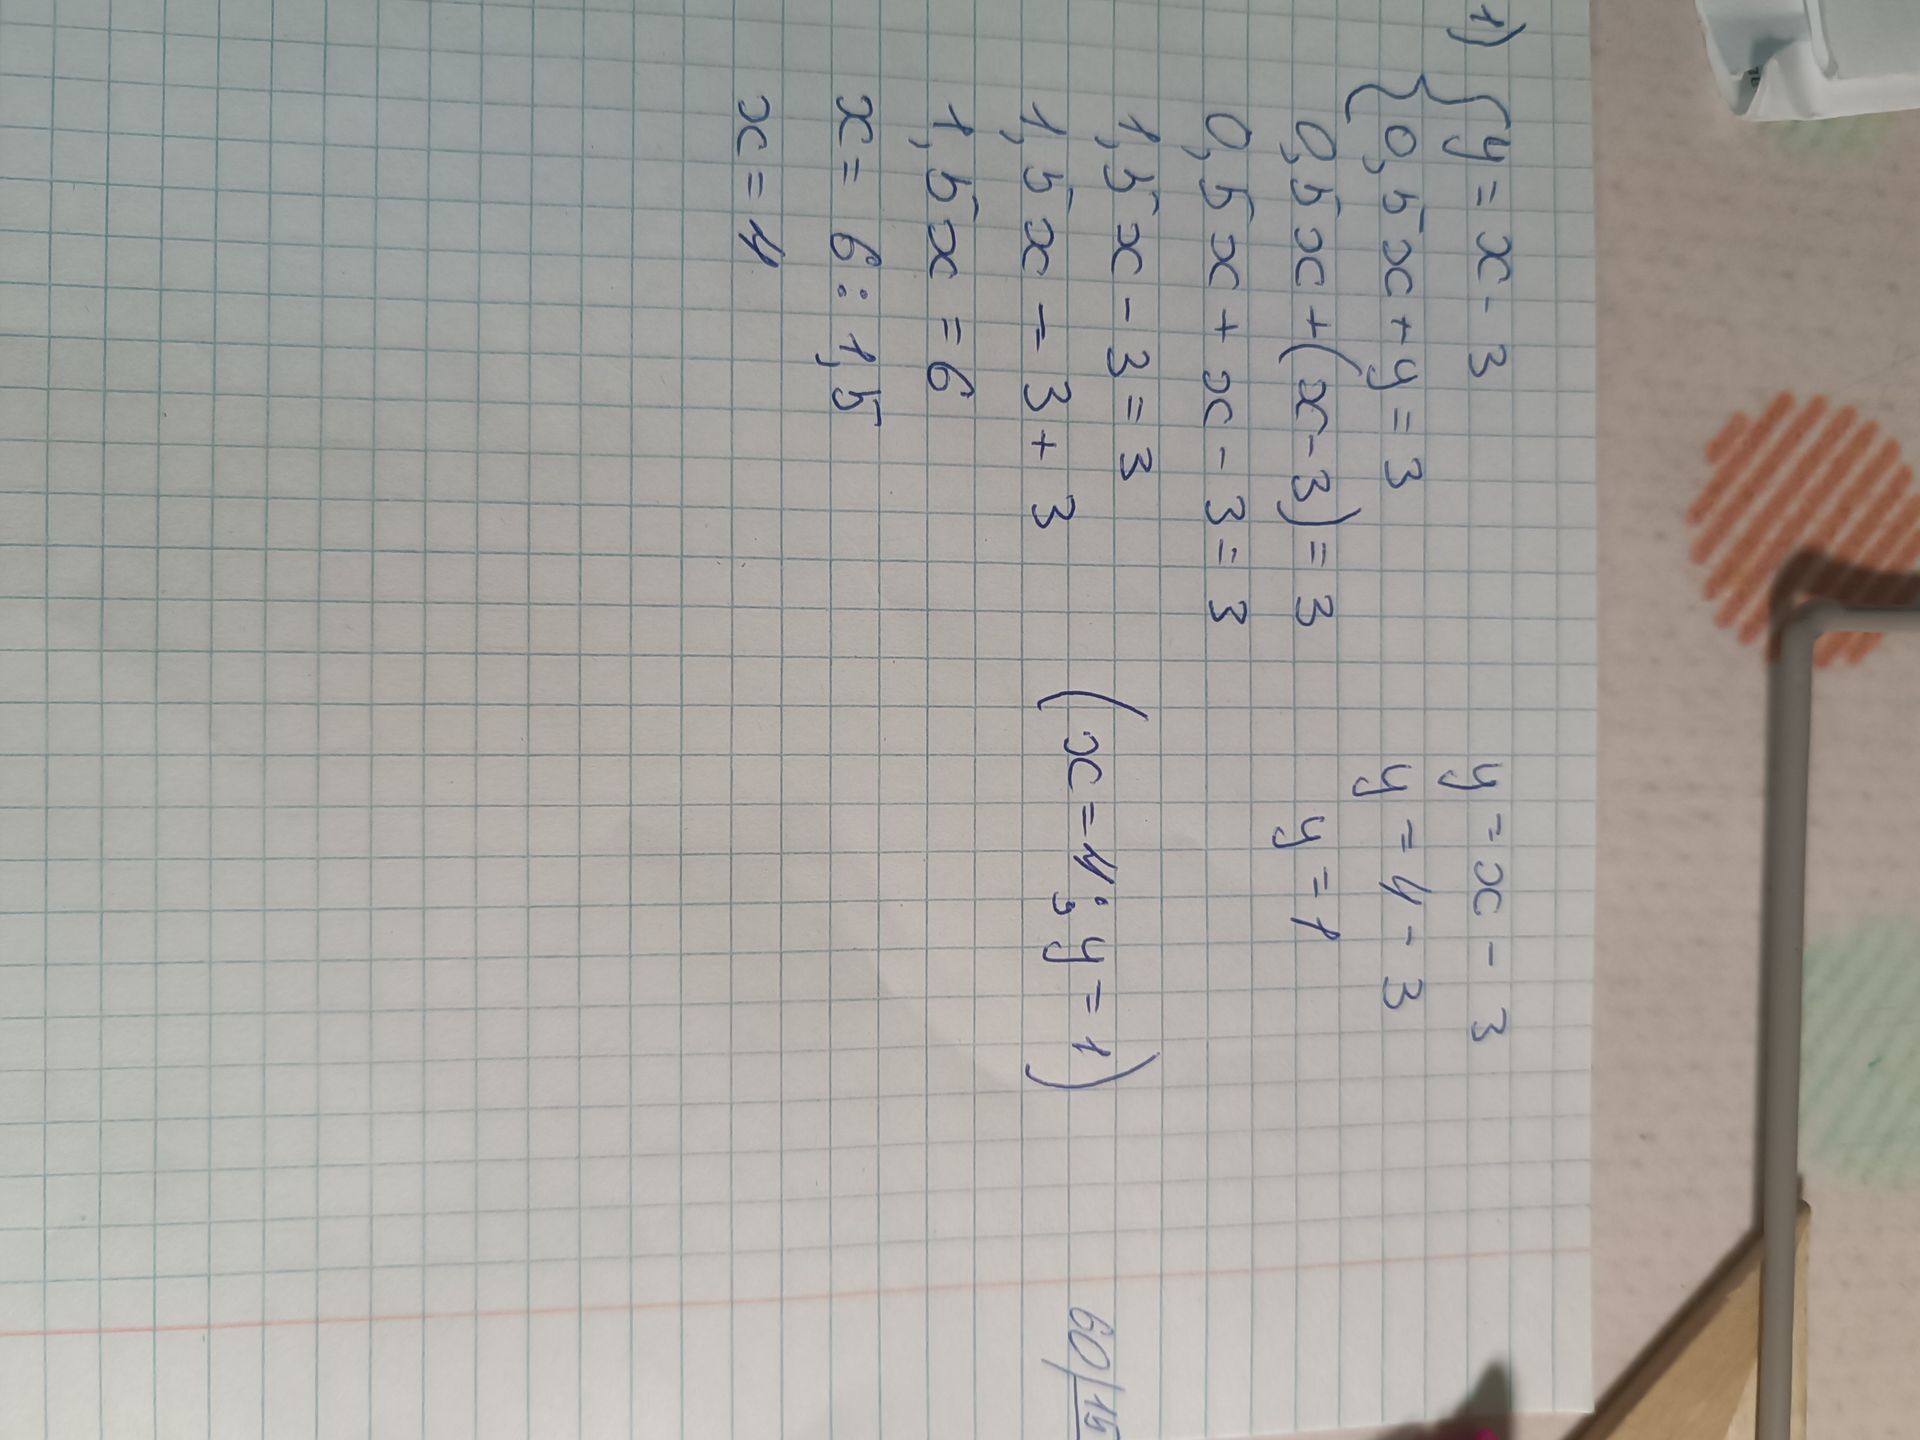 1) { y = x - 3
0,5x + y = 3
0,5x + (x - 3) = 3
0,5x + x - 3 = 3
1,5x - 3 = 3
1,5x - 3 + 3
1,5x = 6
x = 6 : 1,5
x = 4
y = x - 3
y = 4 - 3
y = 1
(x = 4; y = 1)
60 | 15